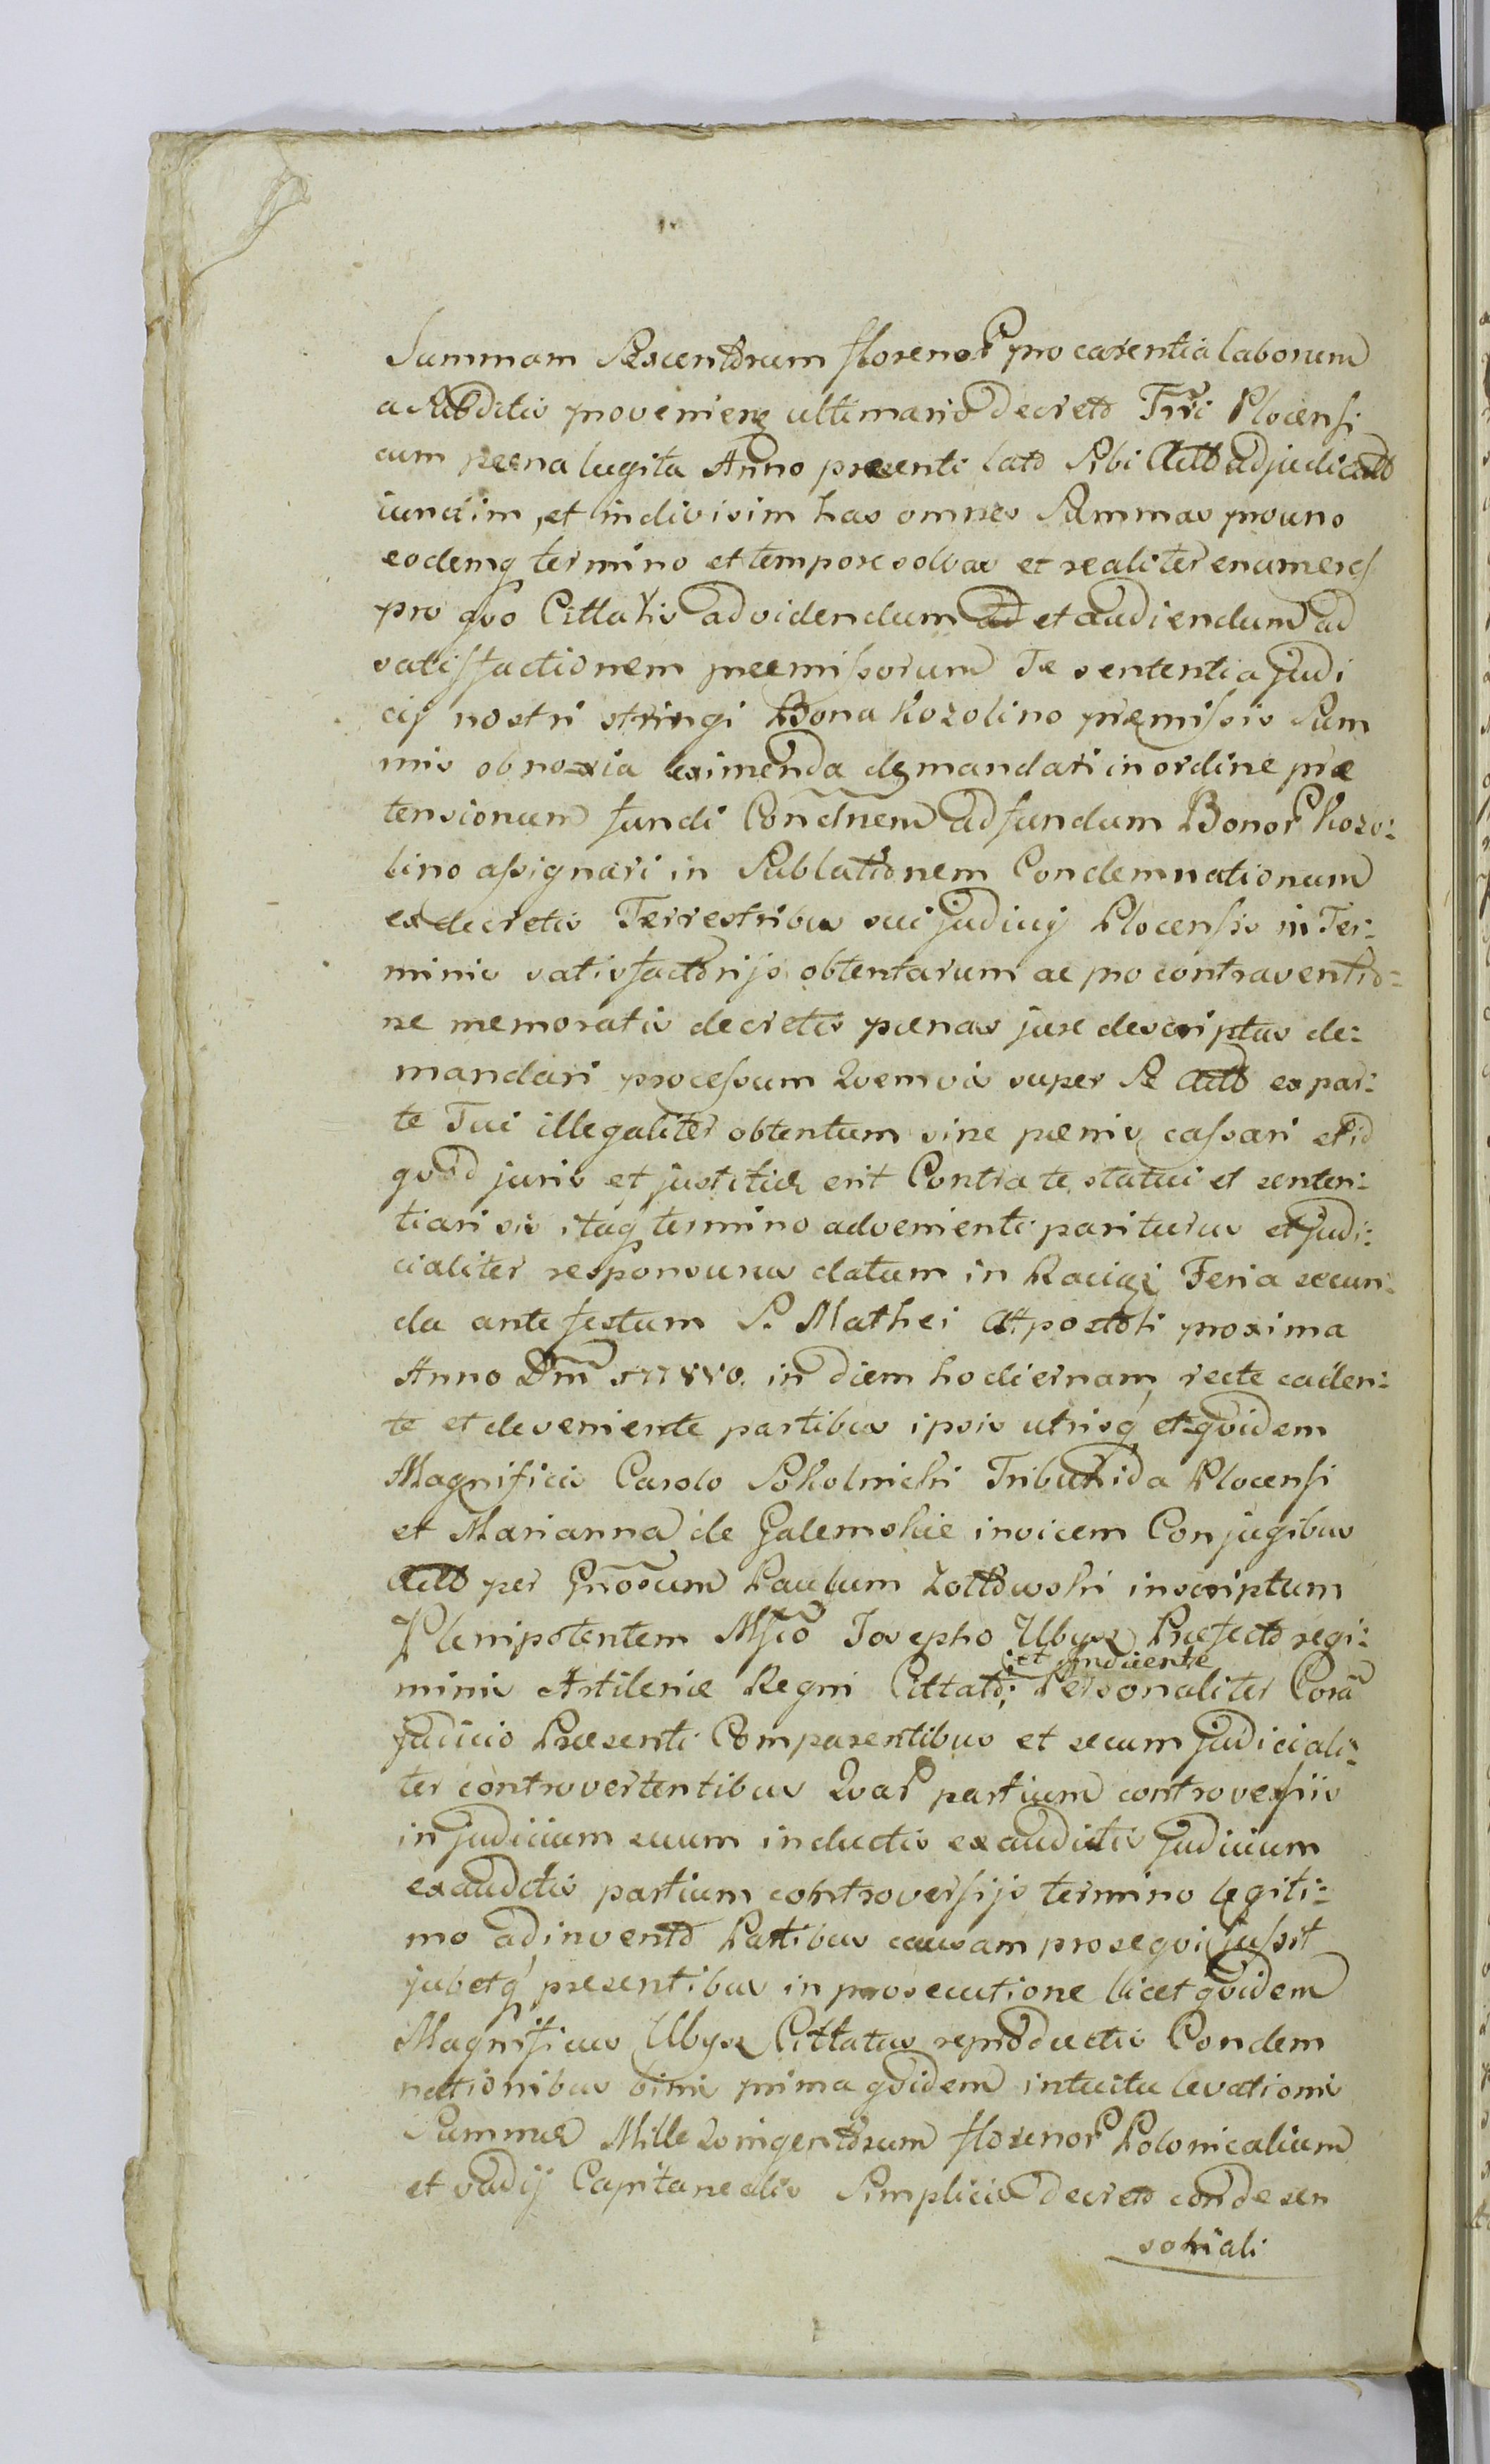 Summam Sexcentorum florenor pro carentia laborum
a Subditis provenien ultimario decreto Trri Plocensi
cum pæna lugita Anno præsenti lato Sibi Actto adjudicatto
iunctim, et indivisim has omnes Summas pro uno
eodemq termino et tempore solvas et realiter enumeres
pro quo Cittatis ad videndum ad et audiendum ad
satisfactionem præmissorum Te sententia judi
cij nostri stringi Bona Kozolino præmissis Sum
mis obnoxia eximenda demandari in ordine præ
tensionum fundi Condnem ad fundum Bonor Kozo:
lino assignari in Sublationem Condemnationum
ex decretis Terrestribus sui judicij Plocensis in Ter:
minis satisfactorijs obtentarum ac pro contraventio:
ne memoratis decretis pænas jure descriptas de:
mandari processum Quemvis super Se Actto ex par:
te Tui illegaliter obtentum sine pænis cassari et id
quod juris et justitiæ erit Contra te statui et senten:
tiari sis itaq termino advenienti pariturus et judi:
cialiter responsurus datum in Raciąż Feria secun:
da ante festum S. Mathei Apostoli proxima
Anno Dni 1780. in diem hodiernam recte caden:
te et deveniente partibus ipsis utrisq et quidem
Magnificis Carolo Sokolnicki Tribunida Plocensi
et Marianna de Galemskie invicem Conjugibus
Actto per Gnosum Paulum Zottowski inscriptum
Plenipotentem Mfco Josepho Ubysz Præfecto regi:
et inducente
minis Artileriæ Regni Cittato; Personaliter Corã
Judicio Præsenti Comparentibus et secum judiciali:
ter controvertentibus Quar partium controversiis
in judicium suum inductis exauditis Judicium
exauditis partium controversijs termino legiti:
mo adinvento Partibus causam prosequi jussit
jubetq presentibus in prosecutione licet quidem
Magnificus Ubysz Cittatus reproductis Condem
nationibus binis prima quidem intuitu levationis
Summæ Mille Quingentorum florenor Polonicalium
et vadij Capitanealis Simplicis decreto condescen
soriali